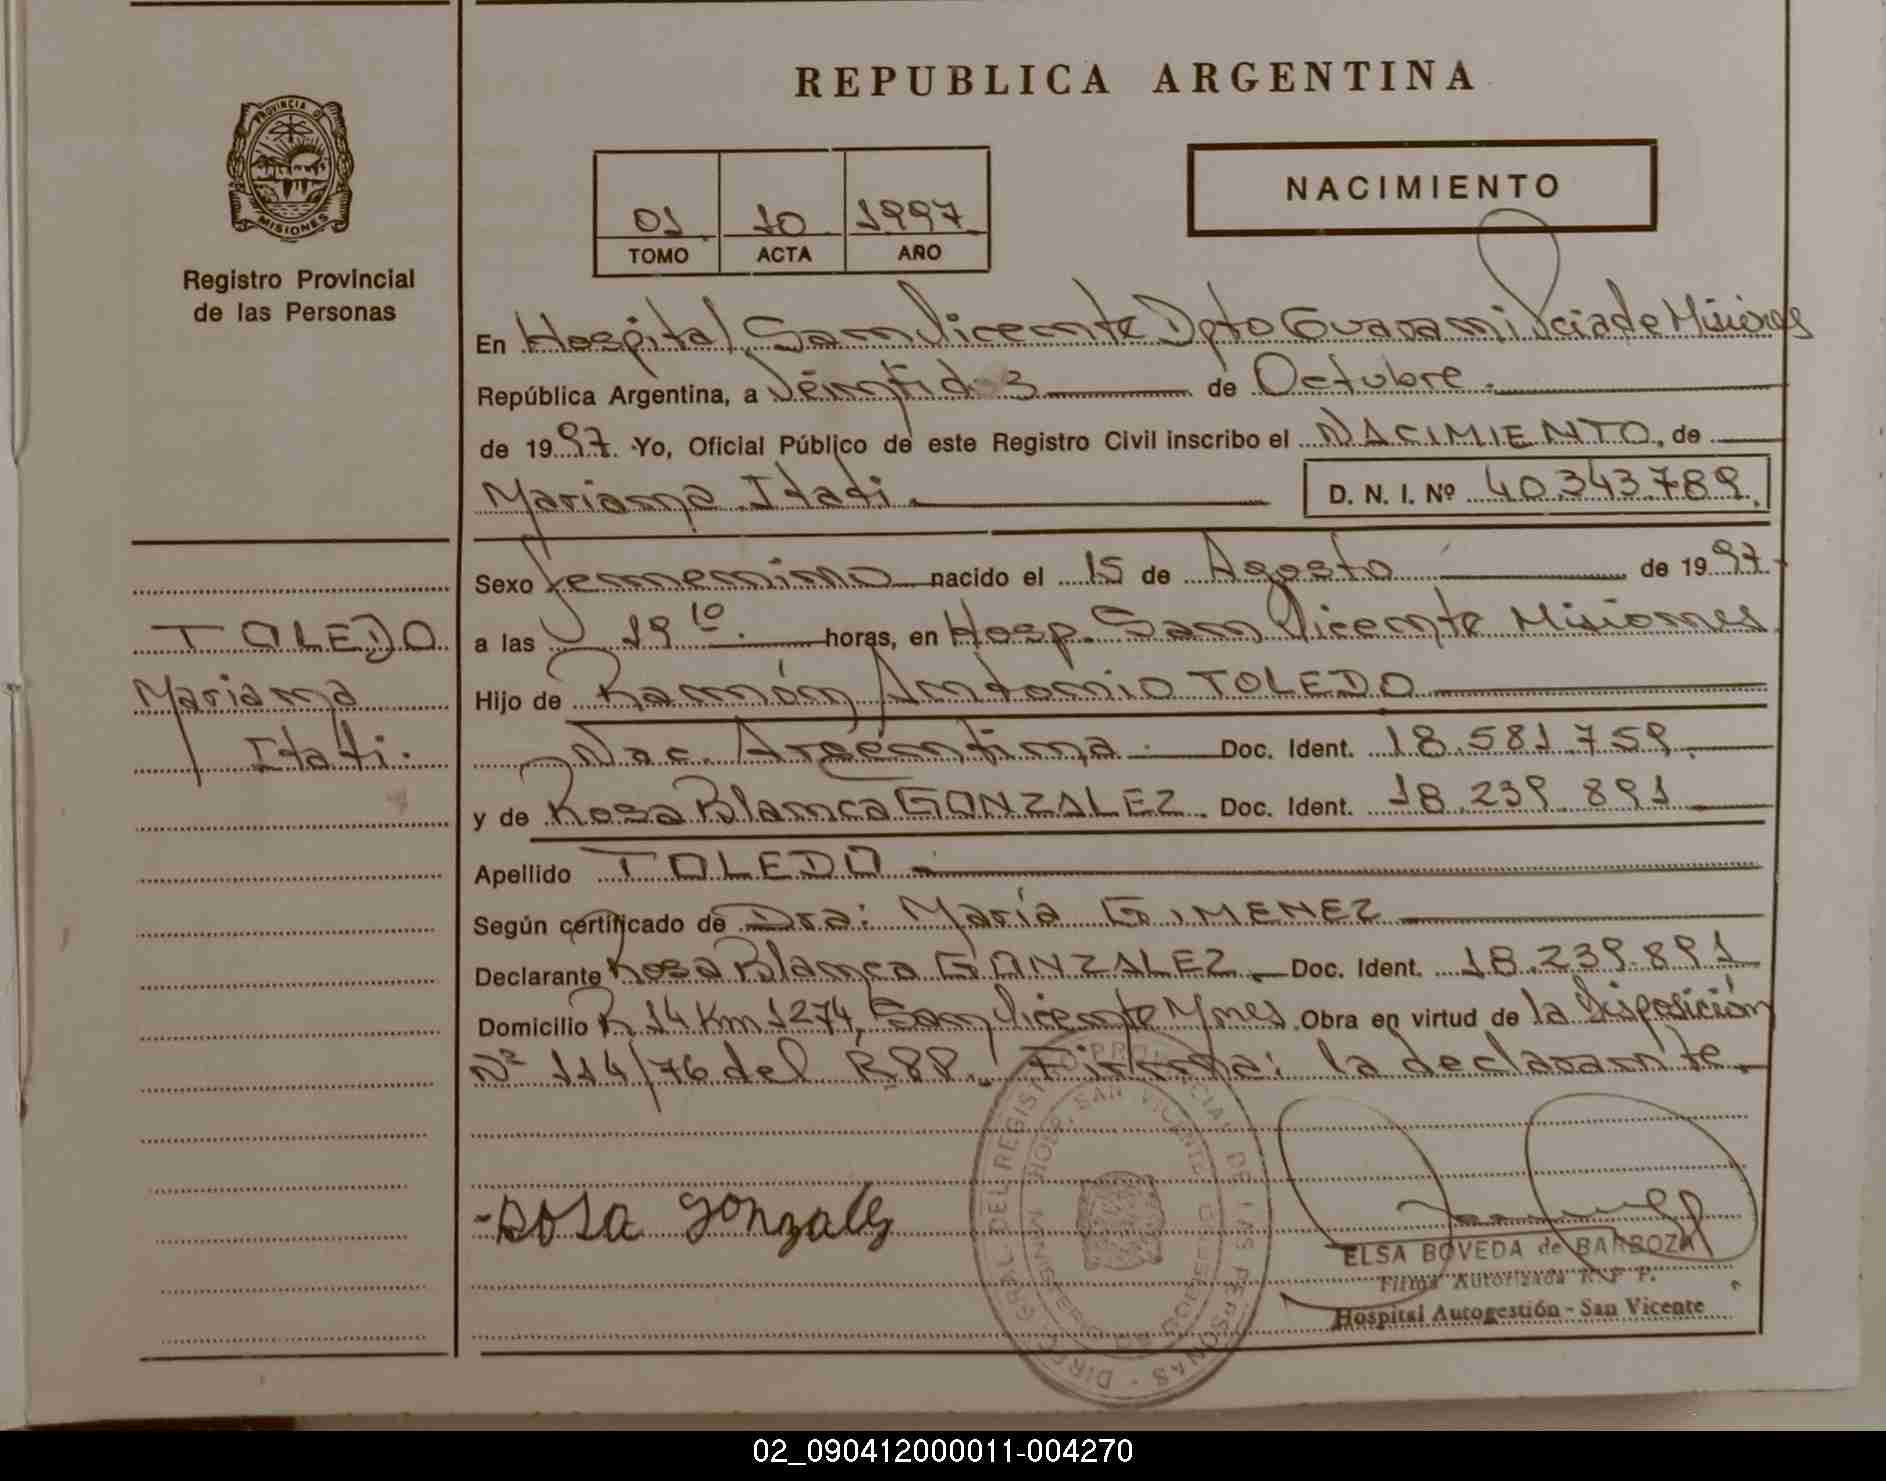 REPUBLICA ARGENTINA
PROVINCIA DE
MISIONES
Registro Provincial
de las Personas
01 10 1997
TOMO ACTA AÑO
NACIMIENTO
En Hospital San Vicente Dpto Guarani Pcia de Misiones
República Argentina, a Veintidos de Octubre
de 1997. Yo, Oficial Público de este Registro Civil inscribo el NACIMIENTO, de
Mariana Itati D. N. I. Nº 40.343.789
Sexo Femenino nacido el 15 de Agosto de 1997
TOLEDO
Mariana
Itati.
a las 19 10. horas, en Hosp. San Vicente Misiones
Hijo de Ramón Antonio TOLEDO
Nac. Argentina. Doc. Ident. 18.581.759.
y de Rosa Blanca GONZALEZ. Doc. Ident. 18.239.891
Apellido TOLEDO
Según certificado de Dra: María GIMENEZ
Declarante Rosa Blanca GONZALEZ. Doc. Ident. 18.239.891
Domicilio R 14 Km 1274, San Vicente Mnes. Obra en virtud de la Disposición
Nº 114/76 del RPP. Firma: la declarante.
Rosa Gonzalez
DIREC. GRAL. DEL REGISTRO PROVINCIAL DE LAS PERSONAS
HOSP. SAN VICENTE
MISIONES
ELSA BOVEDA de BARBOZA
Firma Autorizada R.P P.
Hospital Autogestión - San Vicente
02_090412000011-004270